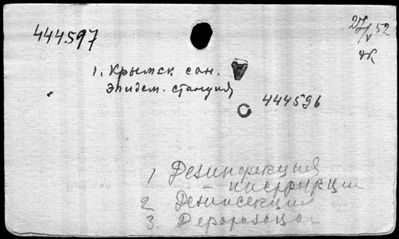 444597
27/V 52
1. Крымск сан.
эпидем. станция
444596
1 Дезинфекция
2 Дезинсекция
3